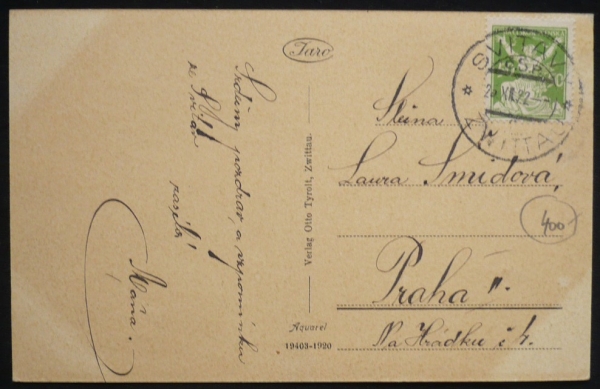 Taro
Srdečný pozdrav a vzpomínku
ze Svitav
zasílá
Máňa.
Verlag Otto Tyrolt, Zwittau.
Aquarel
19403-1920
SVITAVY
ČSR
ZWITTAU
Slečna
Laura Šmídová,
400
Praha II.
Na Hrádku č 4.